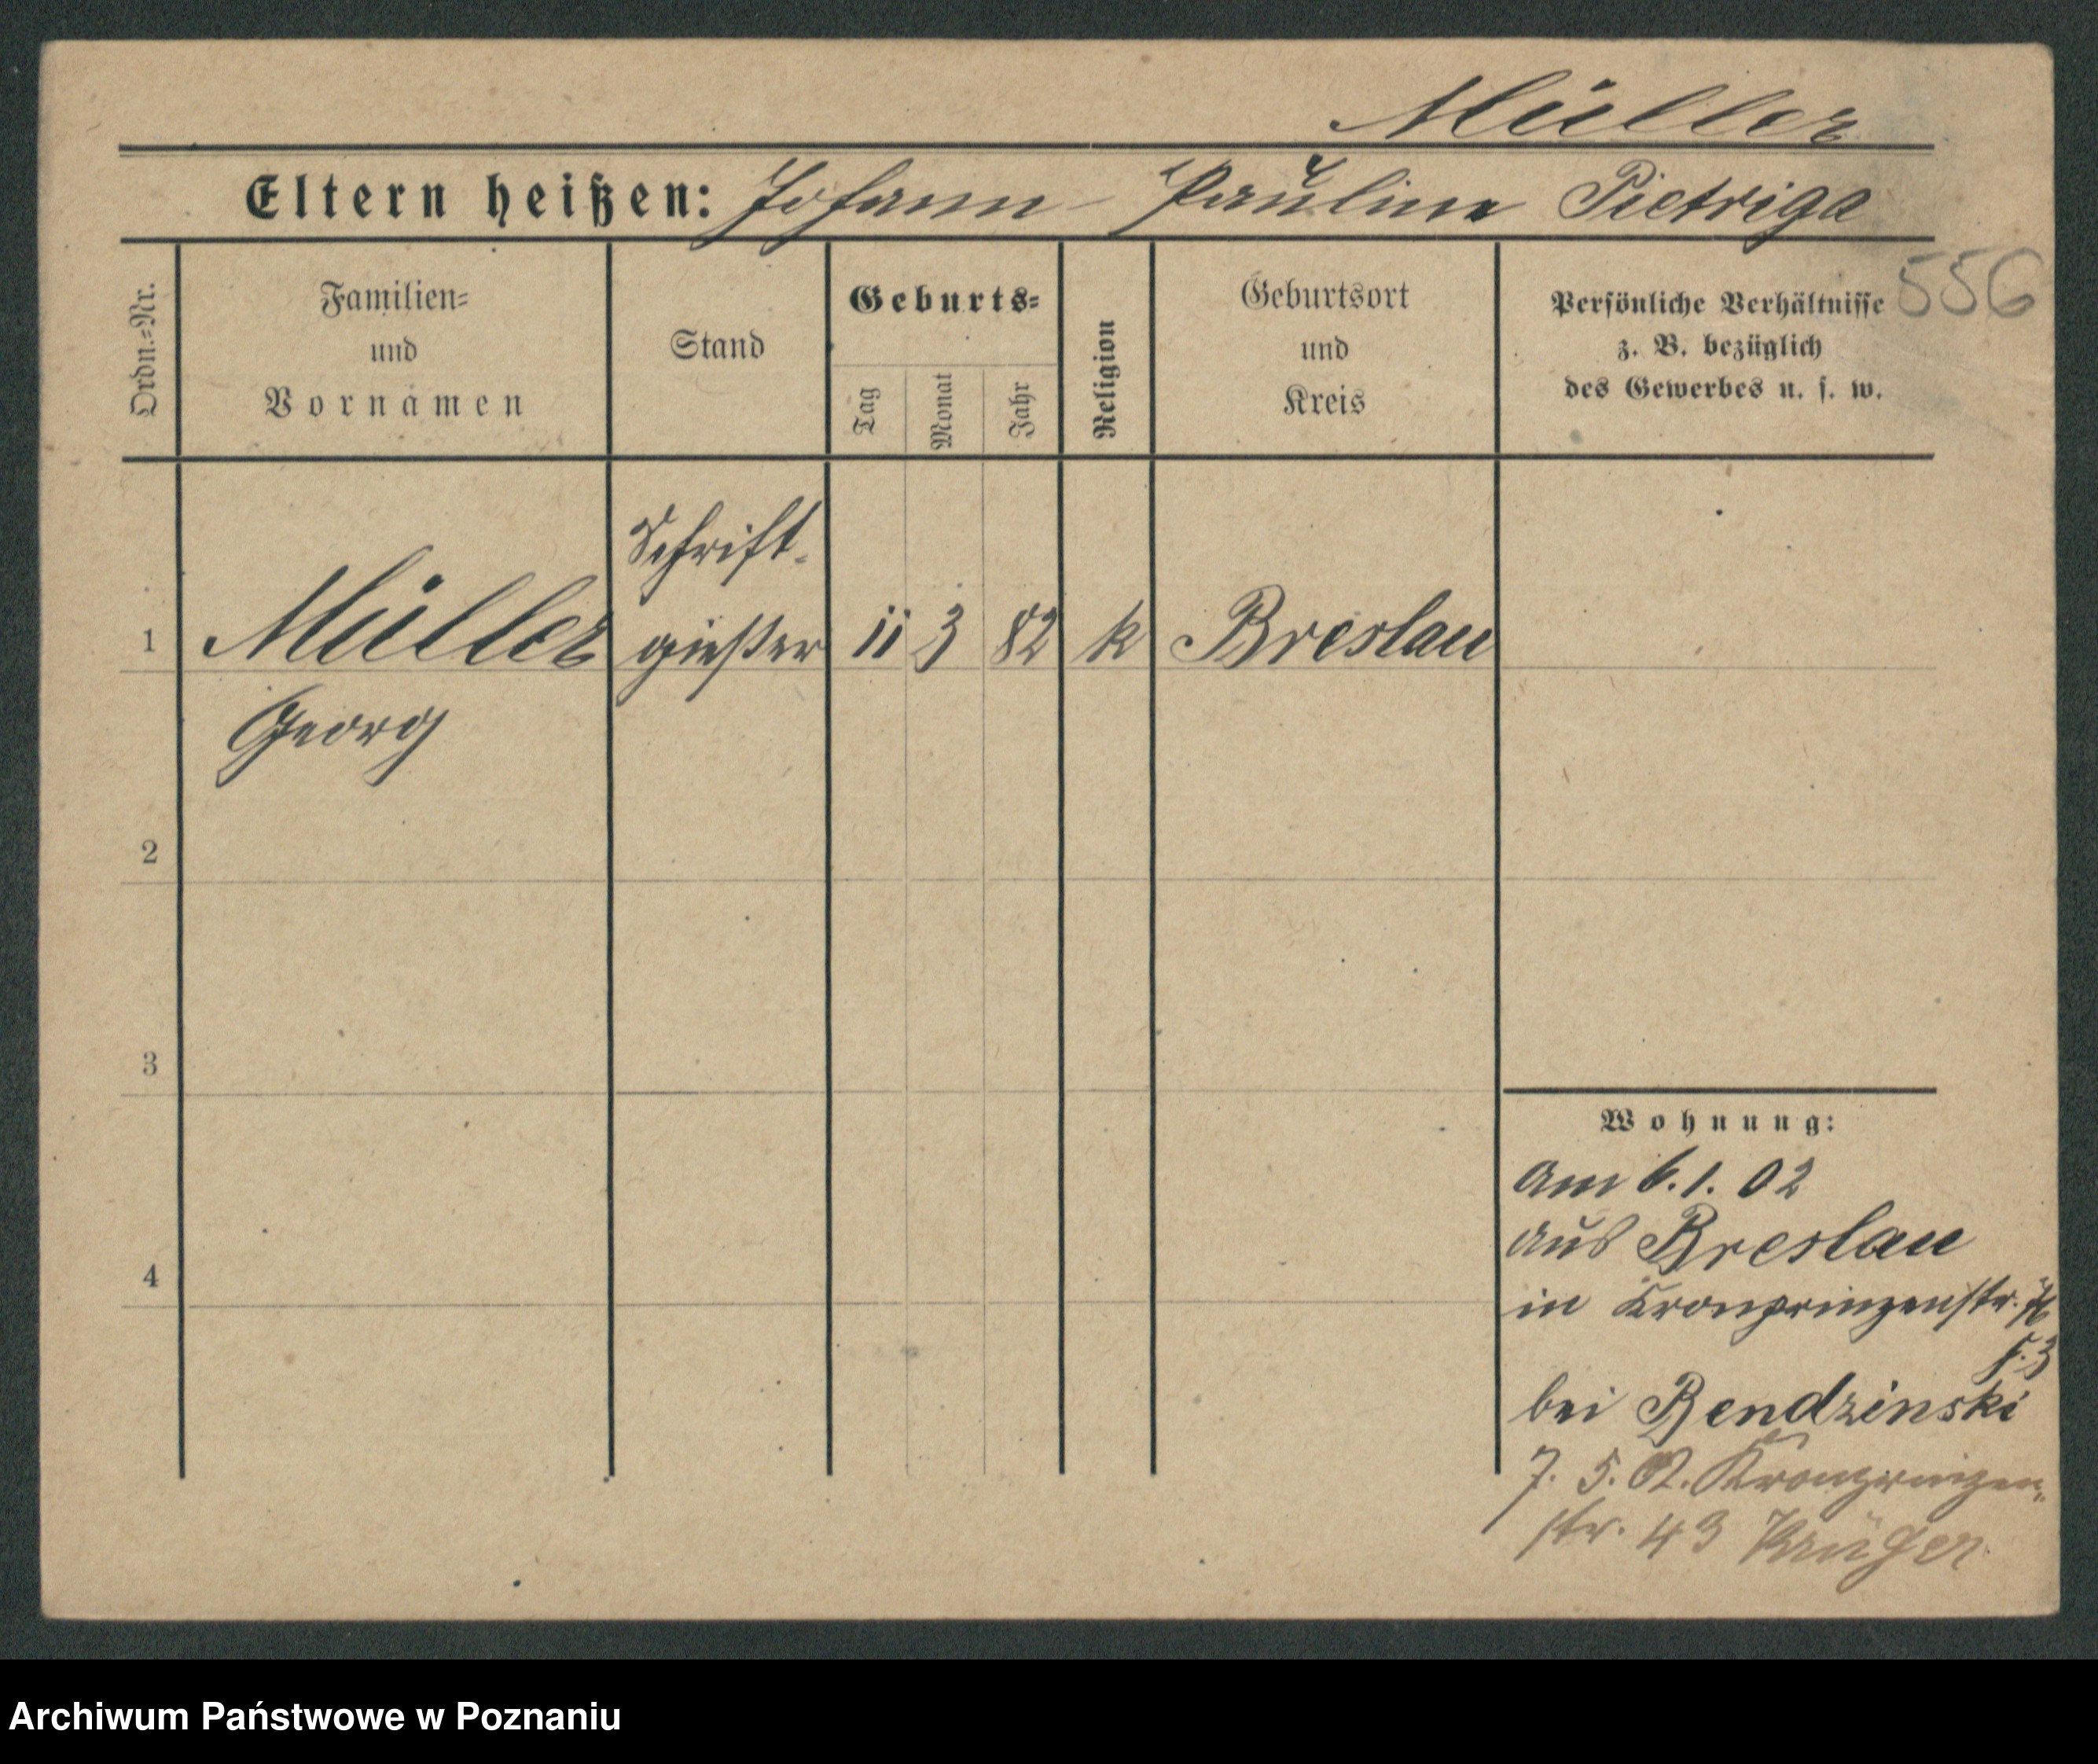 Müller
Eltern heißen: Johann - Pauline Pietriga
556
Ordn.-Nr.
Familien-
und
Vornamen
Stand
Geburts-
Tag
Monat
Jahr
Religion
Geburtsort
und
Kreis
Persönliche Verhältnisse
z. B. bezüglich
des Gewerbes u. s. w.
Schrift-
1 Müller gießer 11 3 82 k Breslau
Georg
2
3
4
Wohnung:
am 6.1.02
aus Breslau
in Kronprinzenstr.
bei Bendzinski
7. 5. 02. Kronprinzen-
str. 43 Krüger
Archiwum Państwowe w Poznaniu